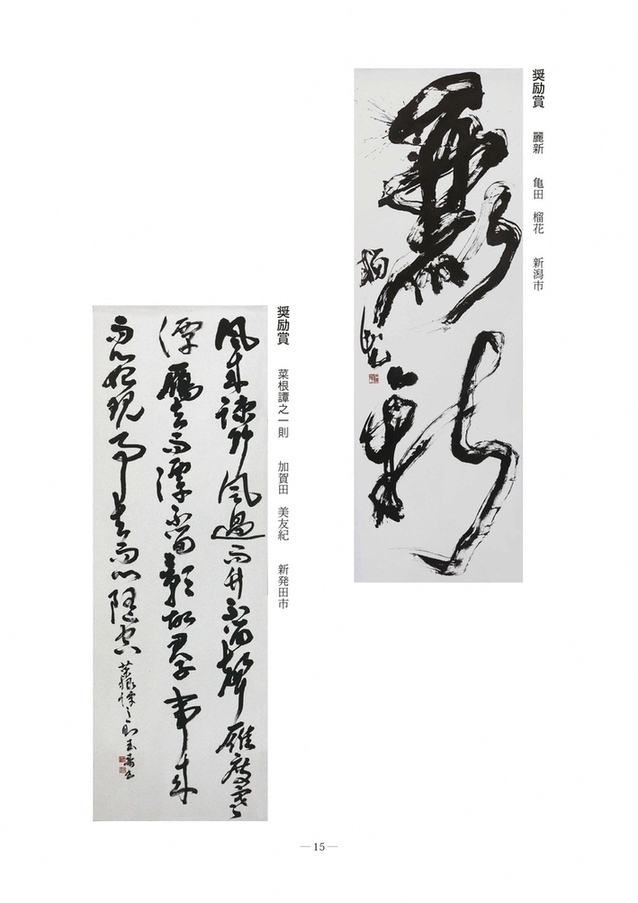 奨励賞 麗新 亀田 榴花 新潟市
麗新
榴花
奨励賞 菜根譚之一則 加賀田 美友紀 新発田市
風来疎竹風過而竹不留聲雁度寒
潭鴈去而潭不留影故君子事来
而心始現事去而心随空
菜根譚之一則
— 15 —